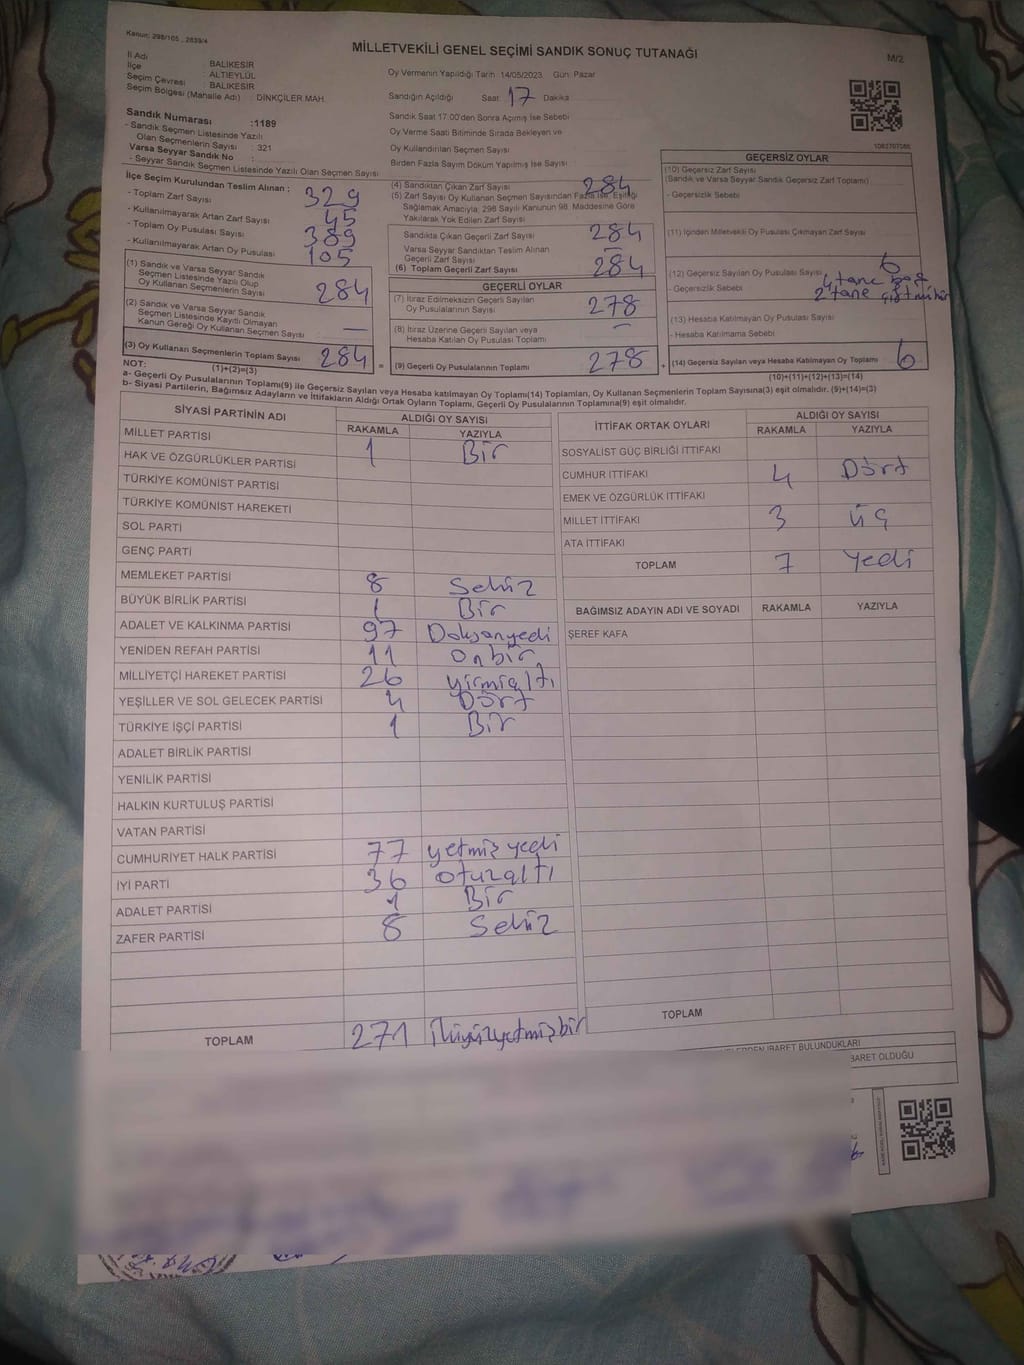 Kanun: 298/105 , 2839/4
MİLLETVEKİLİ GENEL SEÇİMİ SANDIK SONUÇ TUTANAĞI
M/2
İl Adı : BALIKESİR
İlçe : ALTIEYLÜL
Seçim Çevresi : BALIKESİR
Seçim Bölgesi (Mahalle Adı) : DİNKÇİLER MAH.
Sandık Numarası :1189
- Sandık Seçmen Listesinde Yazılı
Olan Seçmenlerin Sayısı : 321
Varsa Seyyar Sandık No :
- Seyyar Sandık Seçmen Listesinde Yazılı Olan Seçmen Sayısı
Oy Vermenin Yapıldığı Tarih :14/05/2023 Gün: Pazar
Sandığın Açıldığı Saat: 17 Dakika
Sandık Saat 17.00'den Sonra Açılmış İse Sebebi
Oy Verme Saati Bitiminde Sırada Bekleyen ve
Oy Kullandırılan Seçmen Sayısı
Birden Fazla Sayım Döküm Yapılmış İse Sayısı :
İlçe Seçim Kurulundan Teslim Alınan :
- Toplam Zarf Sayısı 329
- Kullanılmayarak Artan Zarf Sayısı 45
- Toplam Oy Pusulası Sayısı 389
- Kullanılmayarak Artan Oy Pusulası 105
(1) Sandık ve Varsa Seyyar Sandık
Seçmen Listesinde Yazılı Olup
Oy Kullanan Seçmenlerin Sayısı 284
(2) Sandık ve Varsa Seyyar Sandık
Seçmen Listesinde Kayıtlı Olmayan
Kanun Gereği Oy Kullanan Seçmen Sayısı —
(3) Oy Kullanan Seçmenlerin Toplam Sayısı 284
(1)+(2)=(3)
(4) Sandıktan Çıkan Zarf Sayısı 284
(5) Zarf Sayısı Oy Kullanan Seçmen Sayısından Fazla ise, Eşitliği
Sağlamak Amacıyla, 298 Sayılı Kanunun 98. Maddesine Göre
Yakılarak Yok Edilen Zarf Sayısı
Sandıkta Çıkan Geçerli Zarf Sayısı 284
Varsa Seyyar Sandıktan Teslim Alınan
Geçerli Zarf Sayısı —
(6) Toplam Geçerli Zarf Sayısı 284
GEÇERLİ OYLAR
(7) İtiraz Edilmeksizin Geçerli Sayılan
Oy Pusulalarının Sayısı 278
(8) İtiraz Üzerine Geçerli Sayılan veya
Hesaba Katılan Oy Pusulası Toplamı —
= (9) Geçerli Oy Pusulalarının Toplamı 278
1083707585
GEÇERSİZ OYLAR
(10) Geçersiz Zarf Sayısı
(Sandık ve Varsa Seyyar Sandık Geçersiz Zarf Toplamı)
- Geçersizlik Sebebi
(11) İçinden Milletvekili Oy Pusulası Çıkmayan Zarf Sayısı
(12) Geçersiz Sayılan Oy Pusulası Sayısı 6
- Geçersizlik Sebebi 4 tane boş
2 tane çift mühür
(13) Hesaba Katılmayan Oy Pusulası Sayısı
- Hesaba Katılmama Sebebi
+ (14) Geçersiz Sayılan veya Hesaba Katılmayan Oy Toplamı 6
(10)+(11)+(12)+(13)=(14)
NOT:
a- Geçerli Oy Pusulalarının Toplamı(9) ile Geçersiz Sayılan veya Hesaba katılmayan Oy Toplamı(14) Toplamları, Oy Kullanan Seçmenlerin Toplam Sayısına(3) eşit olmalıdır. (9)+(14)=(3)
b- Siyasi Partilerin, Bağımsız Adayların ve İttifakların Aldığı Ortak Oyların Toplamı, Geçerli Oy Pusulalarının Toplamına(9) eşit olmalıdır.
SİYASİ PARTİNİN ADI ALDIĞI OY SAYISI
RAKAMLA YAZIYLA
MİLLET PARTİSİ 1 Bir
HAK VE ÖZGÜRLÜKLER PARTİSİ
TÜRKİYE KOMÜNİST PARTİSİ
TÜRKİYE KOMÜNİST HAREKETİ
SOL PARTİ
GENÇ PARTİ
MEMLEKET PARTİSİ 8 Sekiz
BÜYÜK BİRLİK PARTİSİ 1 Bir
ADALET VE KALKINMA PARTİSİ 97 Doksanyedi
YENİDEN REFAH PARTİSİ 11 Onbir
MİLLİYETÇİ HAREKET PARTİSİ 26 yirmialtı
YEŞİLLER VE SOL GELECEK PARTİSİ 4 Dört
TÜRKİYE İŞÇİ PARTİSİ 1 Bir
ADALET BİRLİK PARTİSİ
YENİLİK PARTİSİ
HALKIN KURTULUŞ PARTİSİ
VATAN PARTİSİ
CUMHURİYET HALK PARTİSİ 77 yetmiş yedi
İYİ PARTİ 36 otuzaltı
ADALET PARTİSİ 1 Bir
ZAFER PARTİSİ 8 Sekiz
TOPLAM 271 İkiyüzyetmişbir
İTTİFAK ORTAK OYLARI ALDIĞI OY SAYISI
RAKAMLA YAZIYLA
SOSYALİST GÜÇ BİRLİĞİ İTTİFAKI
CUMHUR İTTİFAKI 4 Dört
EMEK VE ÖZGÜRLÜK İTTİFAKI
MİLLET İTTİFAKI 3 üç
ATA İTTİFAKI
TOPLAM 7 Yedi
BAĞIMSIZ ADAYIN ADI VE SOYADI RAKAMLA YAZIYLA
ŞEREF KAFA
TOPLAM
İBARET BULUNDUKLARI
OLDUĞU